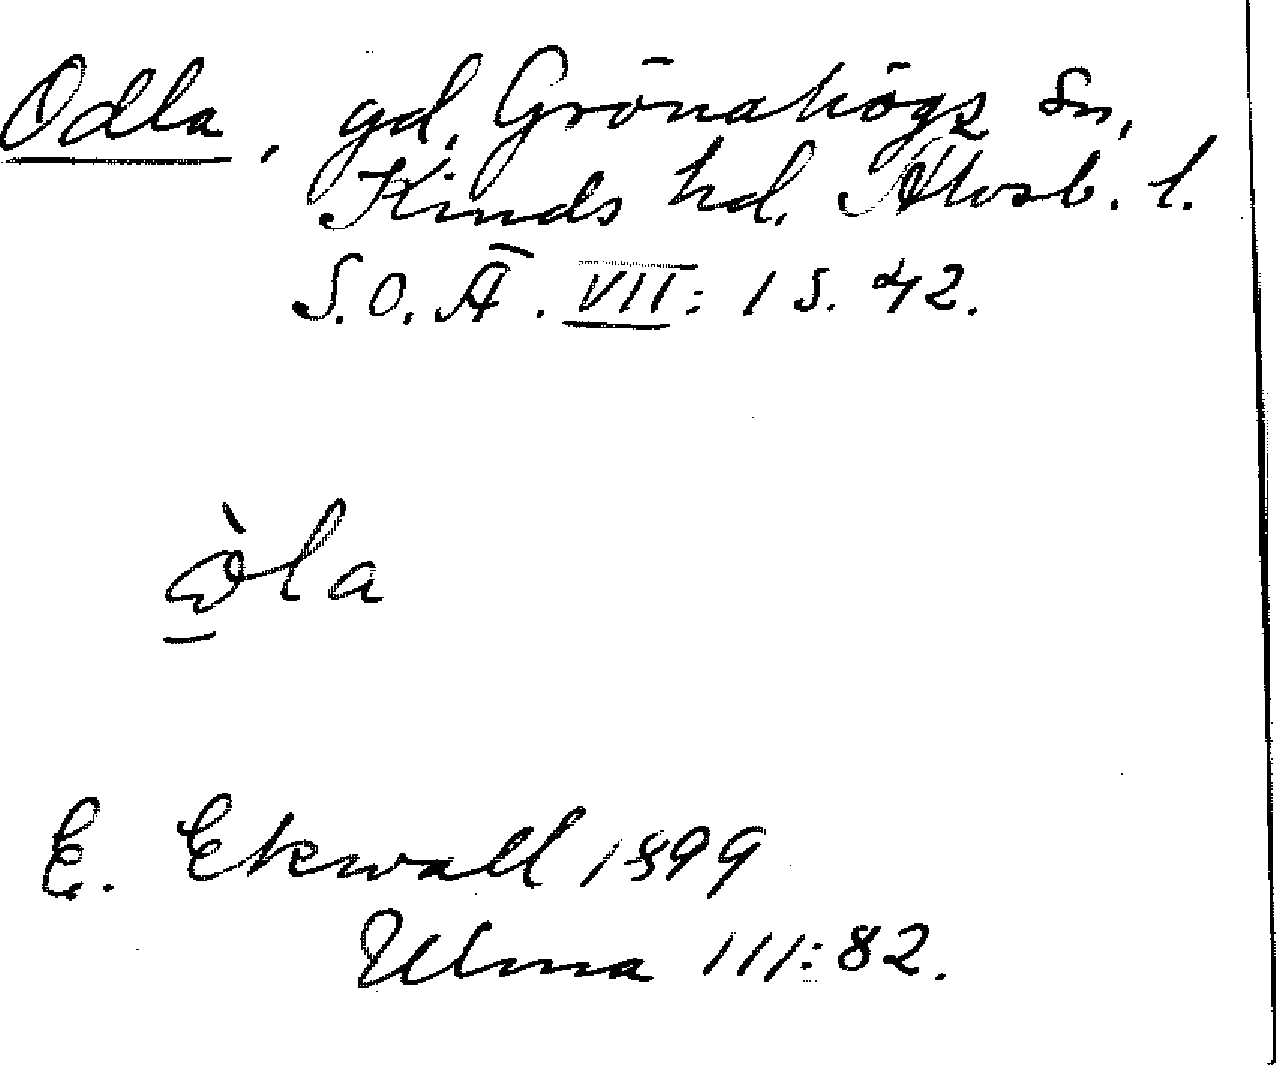 Odla, gd, Grönahögs sn,
Kinds hd. Älvsb. l.
S.O.Ä. VII: 1 s. 42.
òla
E. Ekwall 1899
Ulma 111:82.